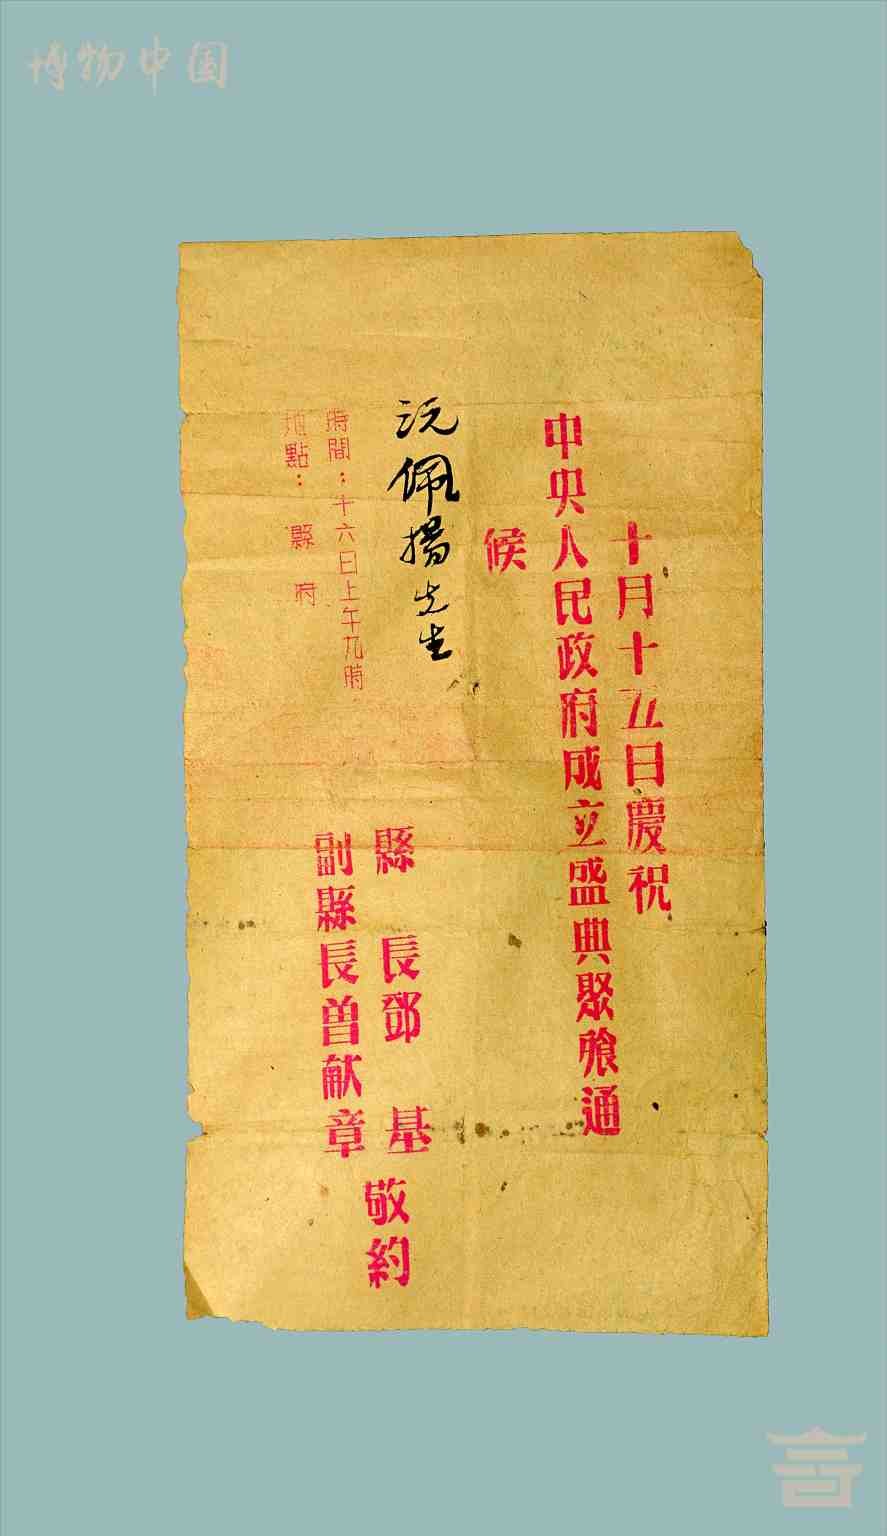 博物中国
十月十五日慶祝
中央人民政府成立盛典聚飱通
候
沅佩揚先生
時間：十六日上午九時
地點：縣府
縣長鄧基
副縣長曾献章
敬約